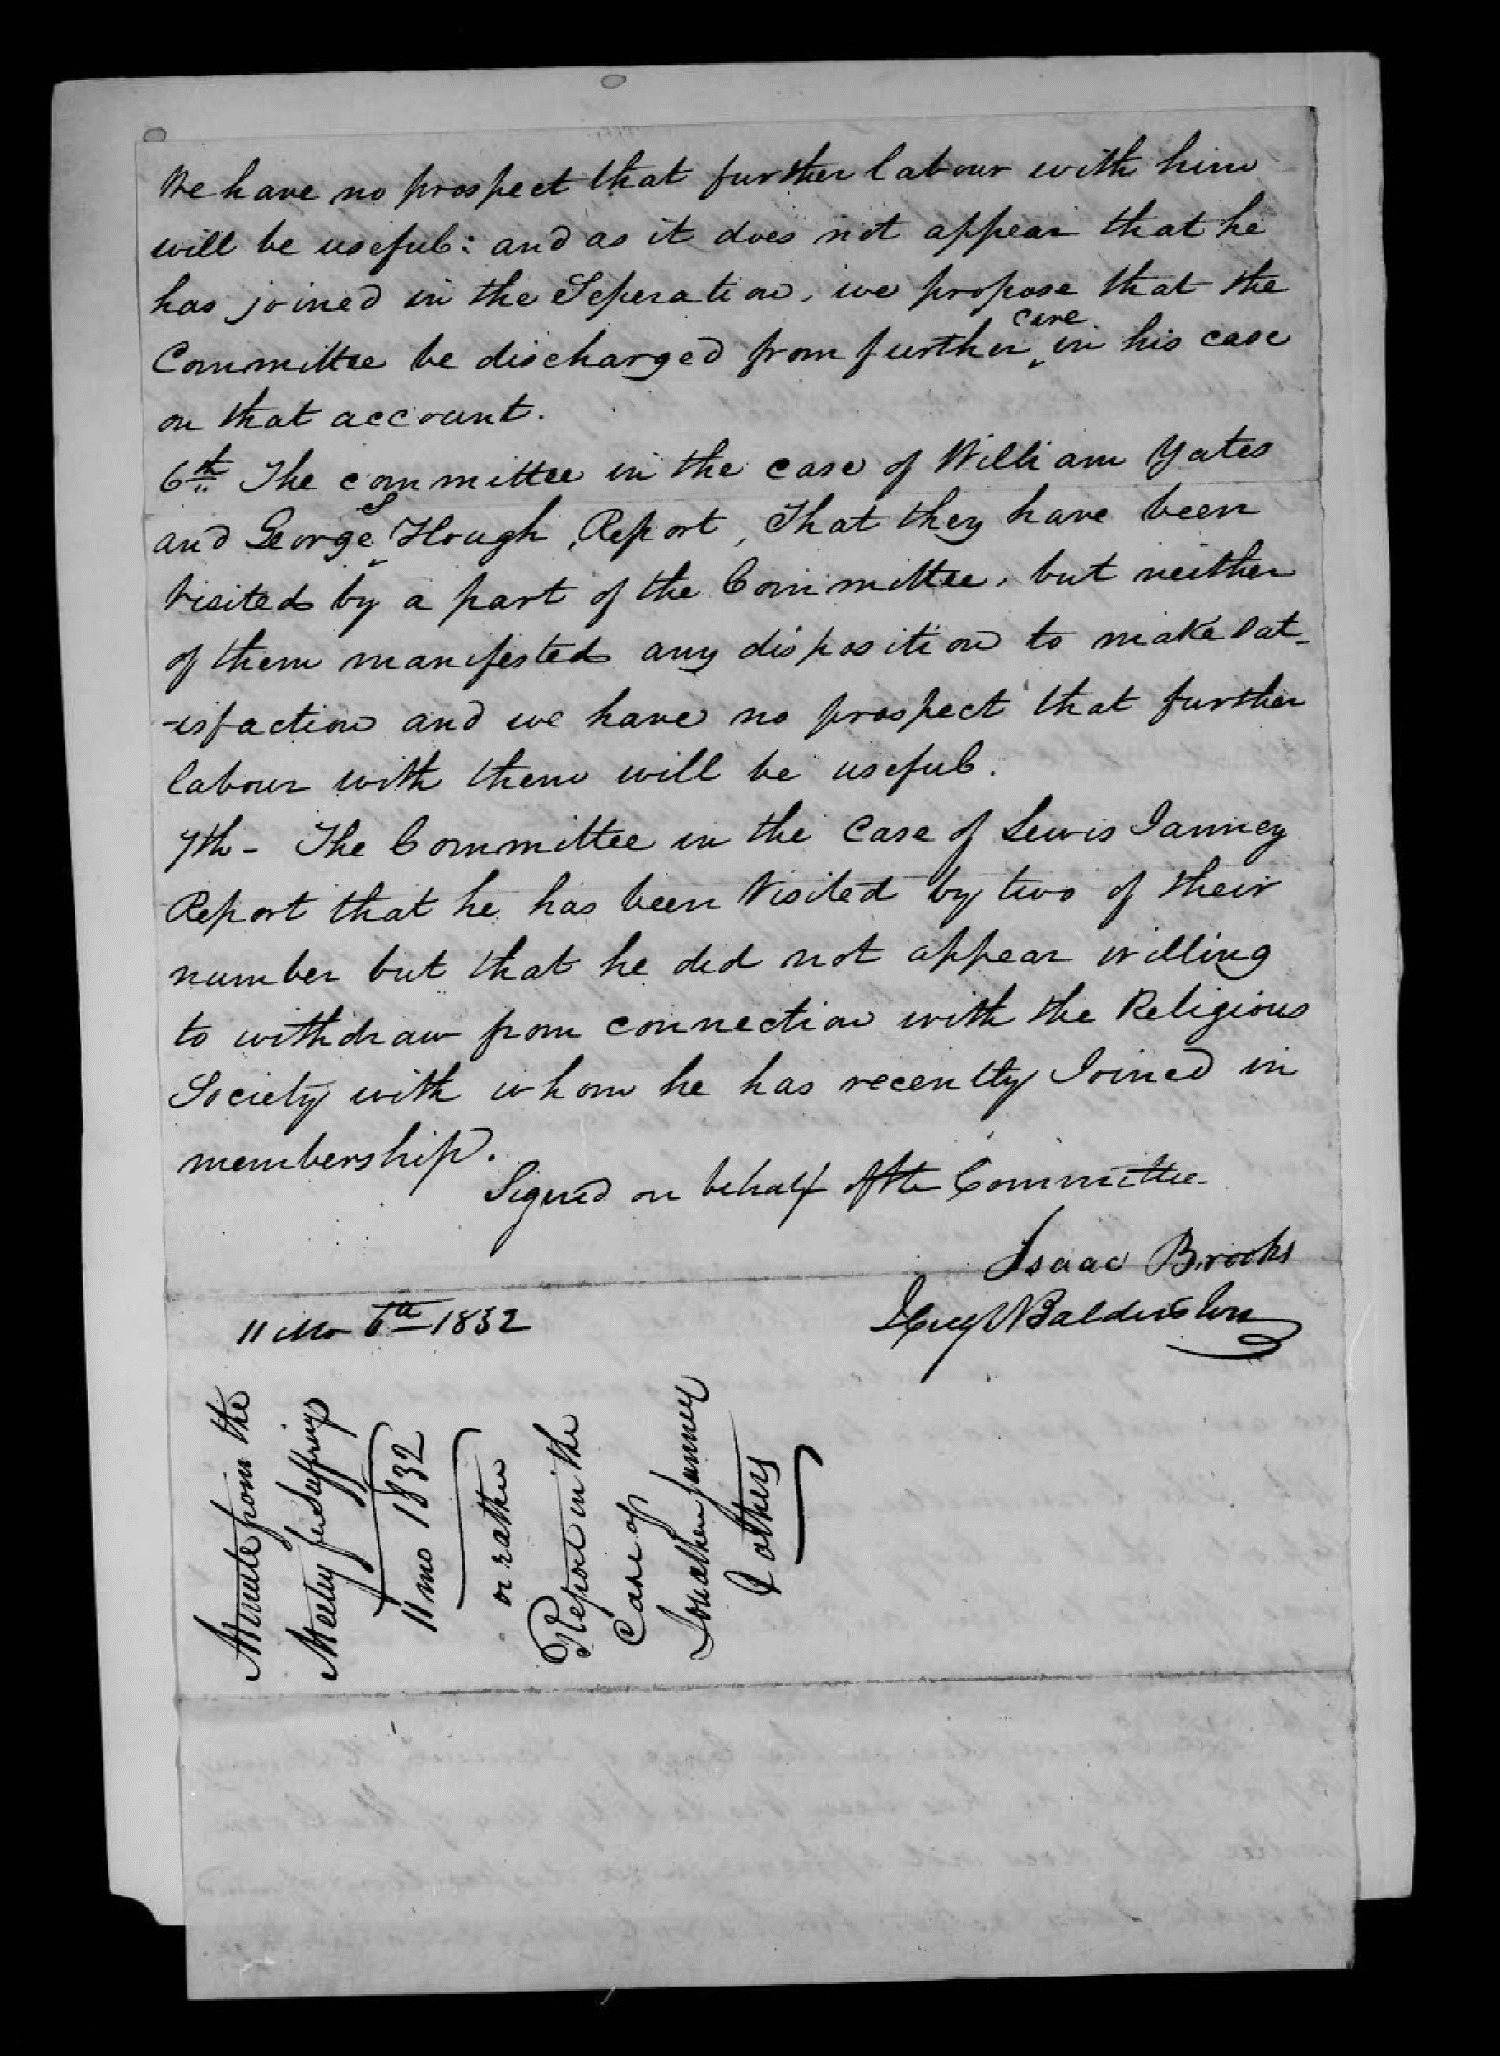 We have no prospect that further labour with him
will be useful: and as it does not appear that he
has joined in the Seperation, we propose that the
Committee be discharged from further care in his case
on that account.
6th The committee in the case of William Yates
and George S Hough, Report, That they have been
Visited by a part of the Committee, but neither
of them manifested any disposition to make sat-
-isfaction and we have no prospect that further
labour with them will be useful.
7th - The Committee in the Case of Lewis Janney
Report that he has been Visited by two of their
number but that he did not appear willing
to withdraw from connection with the Religious
Society with whom he has recently Joined in
membership.
Signed on behalf of the Committee
Isaac Brooks
Hugh Balderston
11 Mo 6th 1832
Minute from the
Meeting for Sufferings
11 mo 1832
or rather
Report in the
Case of
Jonathan Janney
& others